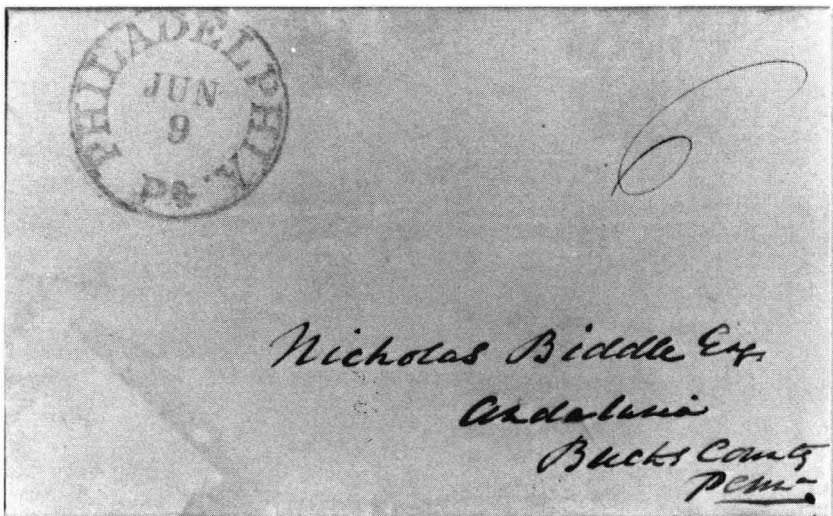 PHILADELPHIA
JUN
9
Pa.
6
Nicholas Biddle Esq
Andalusia
Bucks County
Penna